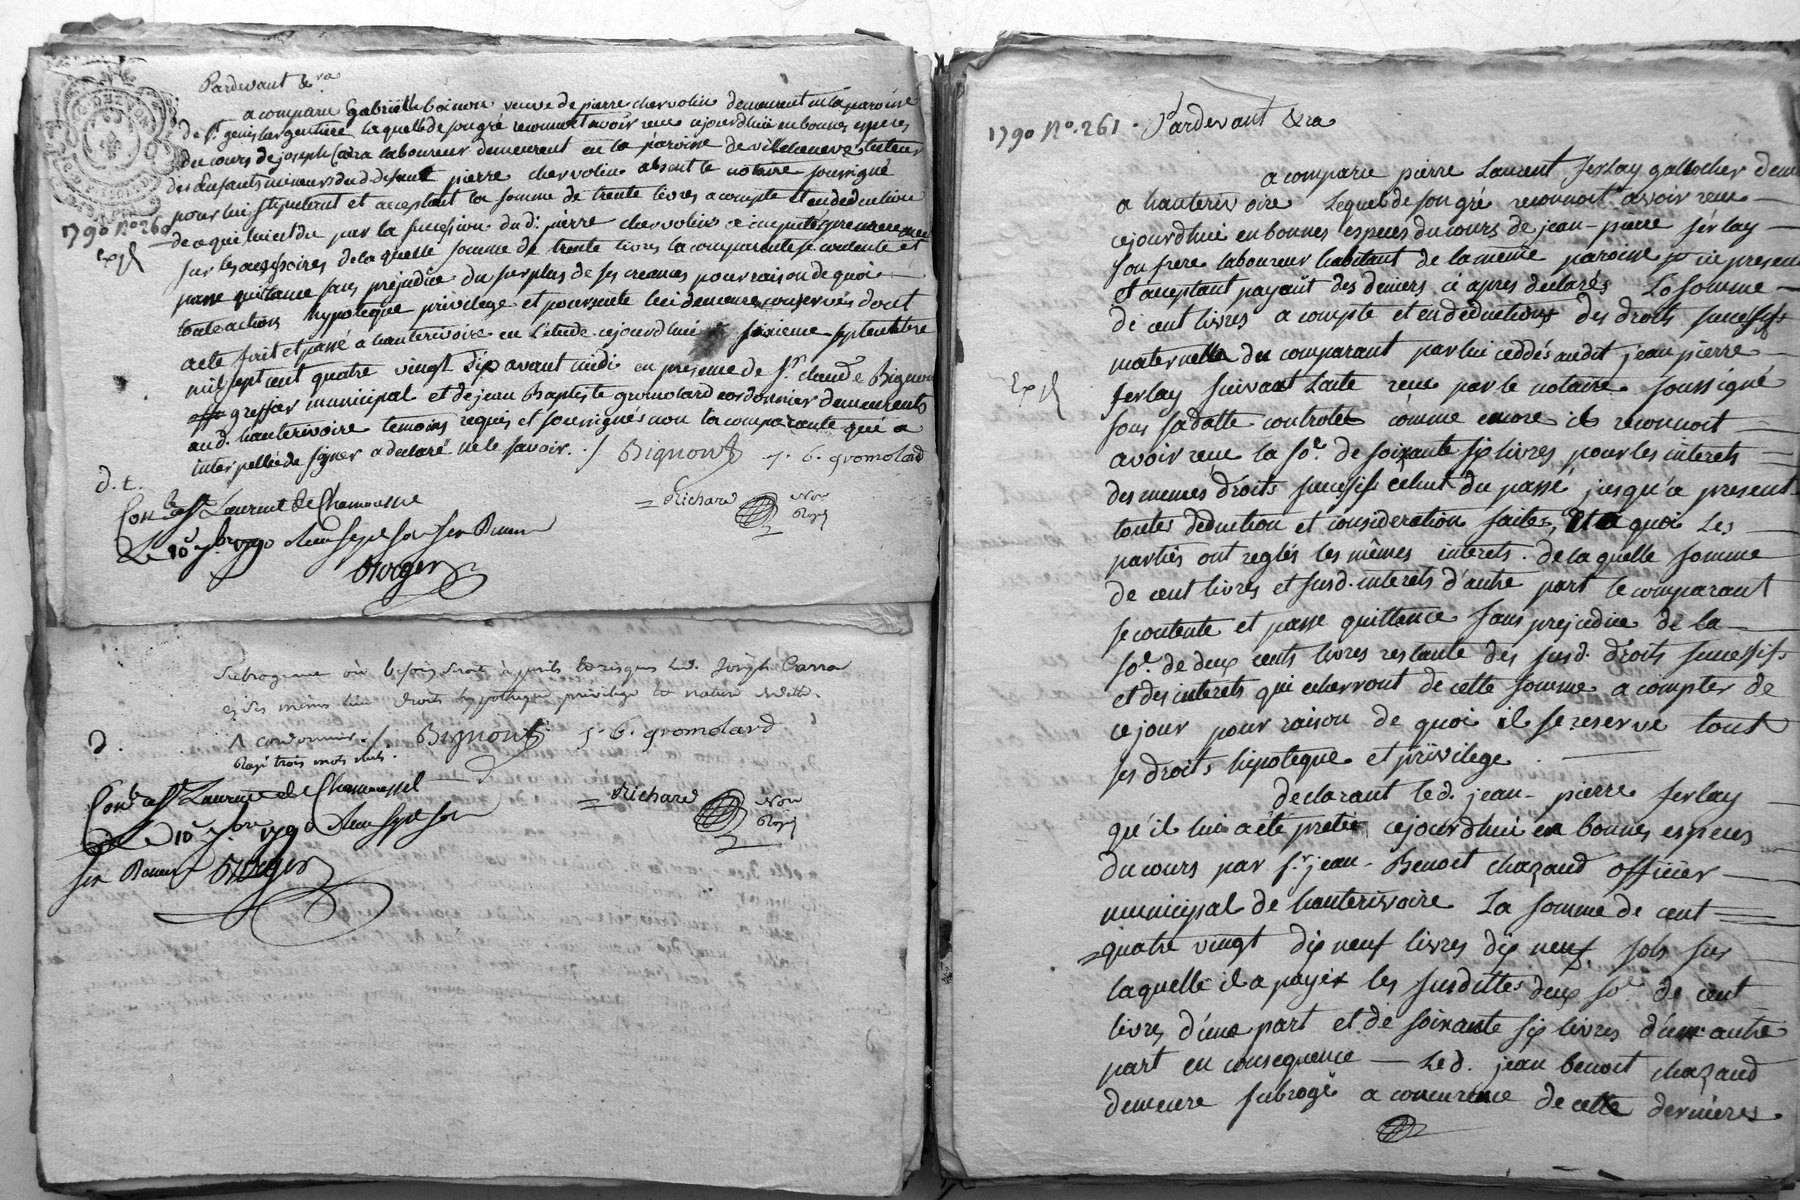 Pardevant &ra
a comparu Gabrielle boinon veuve de pierre chervolin demeurent en la paroisse
de St. genis largentiere laquelle de son gré reconnoit avoir recu cejourdhui en bonnes especes
du cours de joseph Cara laboureur demeurent en la paroisse de villecheneve tuteur
des Enfants mineurs dud defunt pierre chervolin absent le notaire soussigné
pour lui stipulant et acceptant la somme de trente livres a compte et en deduction
de ce qui lui est du par la succession du d. pierre chervolin a imputer
1790 No. 260
sur les accessoires de laquelle somme de trente livres la comparante se contente et
passe quittance sans prejudice du surplus de ses creances pour raison de quoi
toute action hypoteque privilege et poursuite lui demeure conservés dont
acte fait et passé a hauterivoire en l'étude cejourdhui sixieme septembre
mil sept cent quatre vingt dix avant midi en presence de Sr. claude Bignon
greffier municipal et de jean Baptiste gromolard cordonnier demeurents
aud. hauterivoire temoins requis et soussignés non la comparante qui a
interpellée de signer a declaré ne le savoir. / Bignon J. b. gromolard
d. t.
Con.le a St Laurent de Chamousset
Richard Nore Royl
Le 10 7bre 1790
Roger
Subrogeant où besoin droits à perils & risques led. Joseph Carra
es des mêmes lieu droits hypoteque privilege
A cordonnier. / Bignon J. b. gromolard
d.
Rayé trois mots nuls.
Con.le a St Laurent de Chamousset
Richard Nore Royl
le 10 7bre 1790
Roger
1790 No. 261. Pardevant &ra
a comparu pierre Laurent ferlay galocher
a hauterivoire Lequel de son gré reconnoit avoir recu
cejourdhui en bonnes especes du cours de jean-pierre ferlay
son frere laboureur habitant de la même paroisse ici present
et acceptant payant des deniers ci après declarés La somme
de cent livres a compte et en déduction des droits successifs
maternelle du comparant par lui ceddés audit jean pierre
ferlay suivant l'acte recu par le notaire soussigné
sous sa datte controlé comme encore il reconnoit
avoir recu la so.e de soixante six livres pour les interets
des mêmes droits successifs celui du passé jusqu'a present
toutes déduction et consideration faites, Et a quoi Les
parties ont reglés les mêmes interets. de laquelle somme
de cent livres et susd. interets d'autre part le comparant
se contente et passe quittance sans prejudice de la
so.e de deux cents livres restante des susd. droits successifs
et des interets qui echerront de cette somme a compter de
ce jour pour raison de quoi il se reserve tout
ses droits hipoteque et privilege.
declarant led. jean-pierre ferlay
qu'il lui a eté preté cejourdhui en bonnes especes
du cours par Sr. jean-Benoit chazaud officier
municipal de hauterivoire La somme de cent
quatre vingt dix neuf livres dix neuf sols sur
laquelle il a payé les susdittes deux so.e de cent
livres d'une part et de soixante six livres d'une autre
part en consequence – Led. jean benoit chazaud
demeure subrogé a concurence de cette dernieres